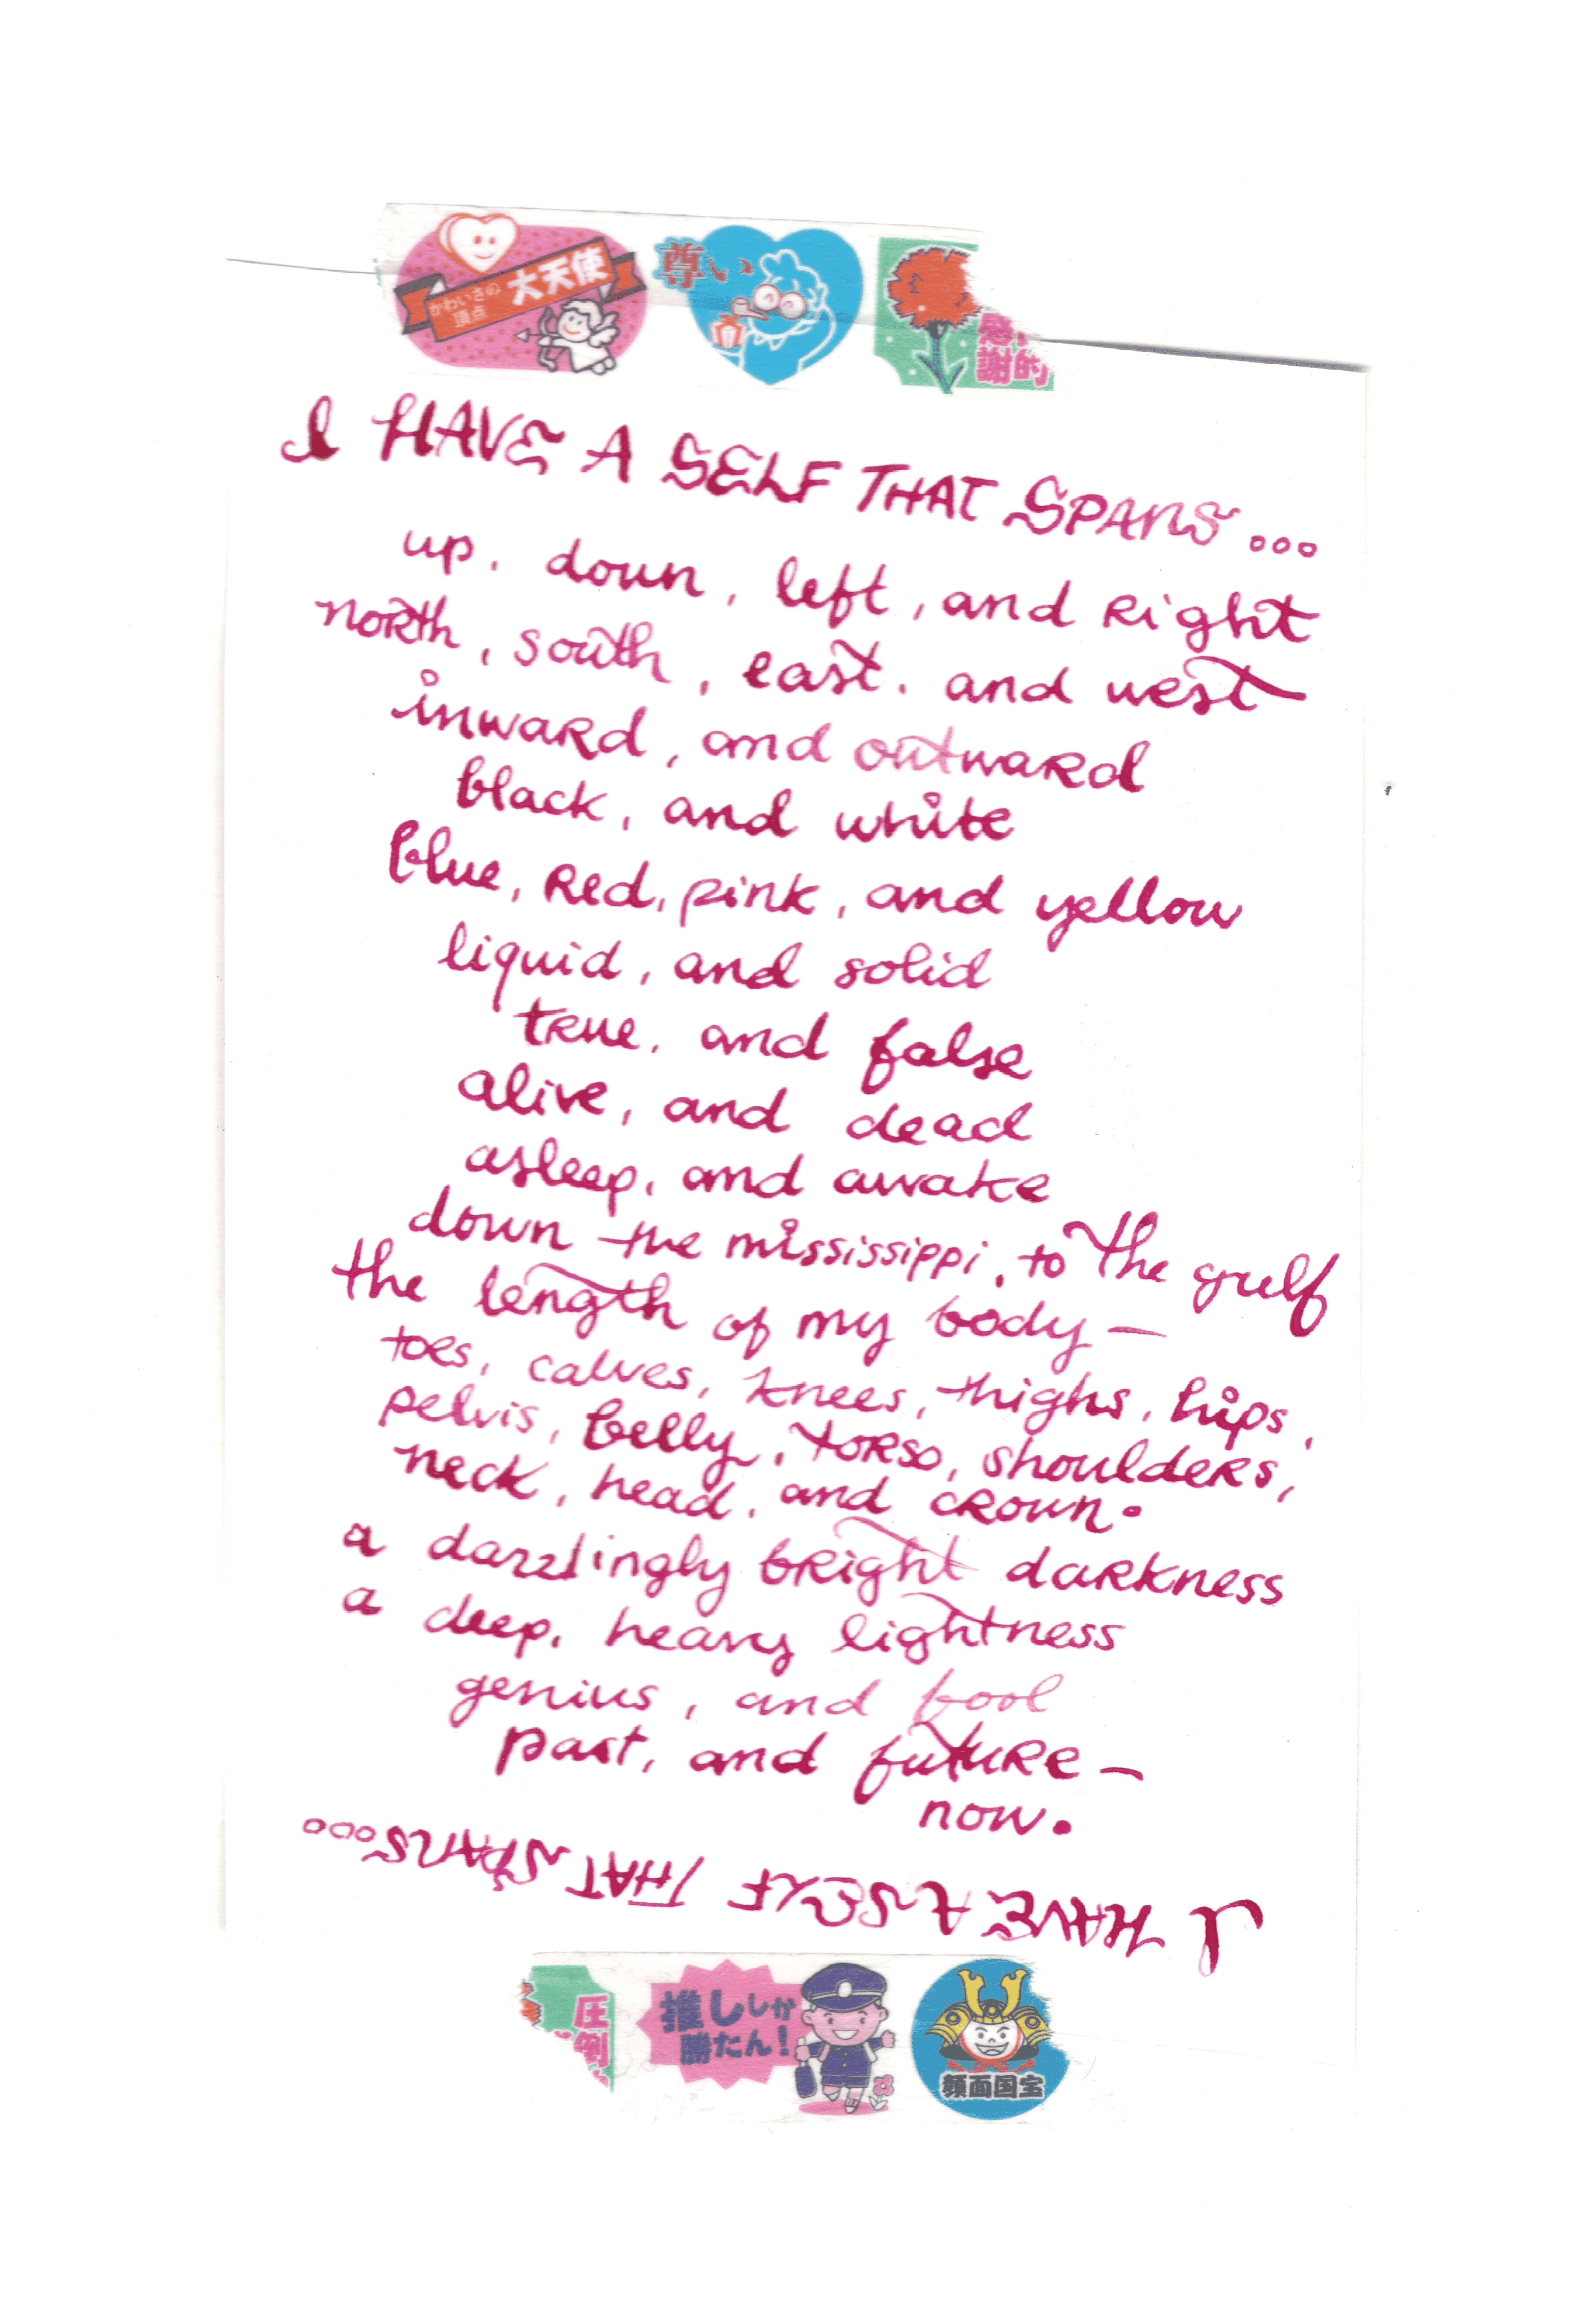 かわいさの
頂点
大天使
尊い
感
謝的
I HAVE A SELF THAT SPANS...
up, down, left, and right
north, south, east, and west
inward, and outward
black, and white
blue, red, pink, and yellow
liquid, and solid
true, and false
alive, and dead
asleep, and awake
down the mississippi, to the gulf
the length of my body —
toes, calves, knees, thighs, hips,
pelvis, belly, torso, shoulders,
neck, head, and crown.
a dazzlingly bright darkness
a deep, heavy lightness
genius, and fool
past, and future —
now.
I HAVE A SELF THAT SPANS...
圧
倒
推ししか
勝たん!
顔面国宝